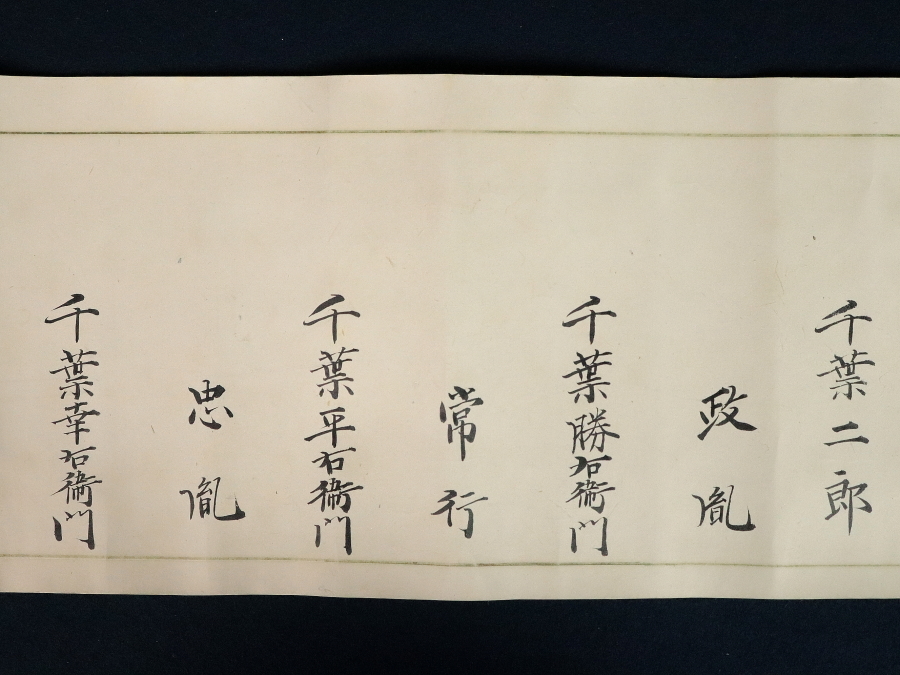 千葉二郎
政胤
千葉勝右衛門
常行
千葉平右衛門
忠胤
千葉幸右衛門